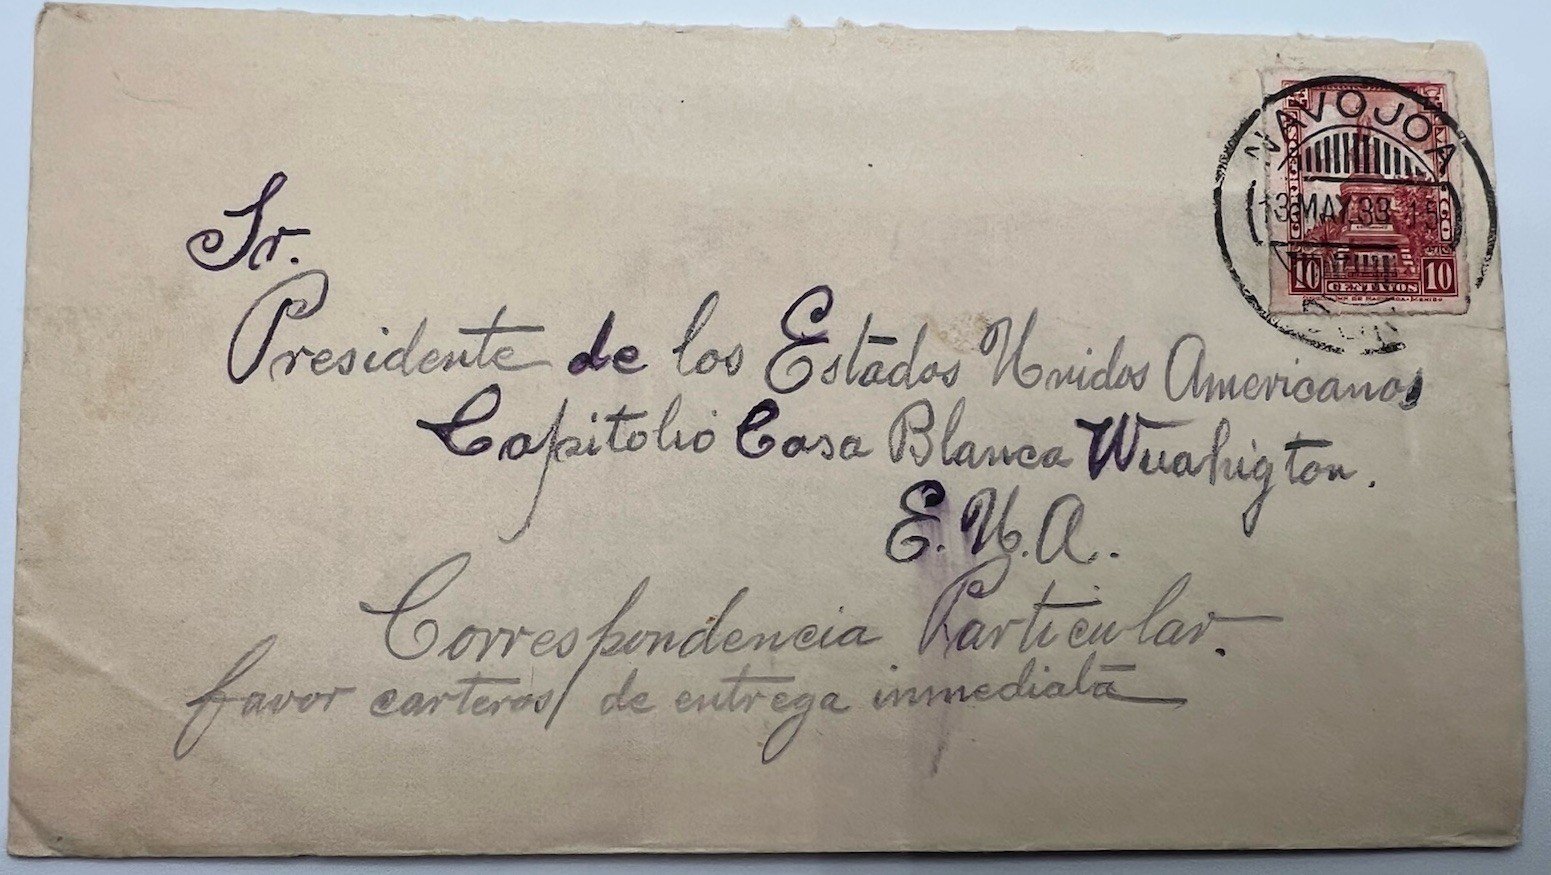 NAVOJOA
13 MAY.33 15
SON
CORREOS MEXICO
10 CENTAVOS 10
Sr.
Presidente de los Estados Unidos Americanos
Capitolio Casa Blanca Wuahigton.
E.U.A.
Correspondencia Particular.
favor carteros/ de entrega inmediata